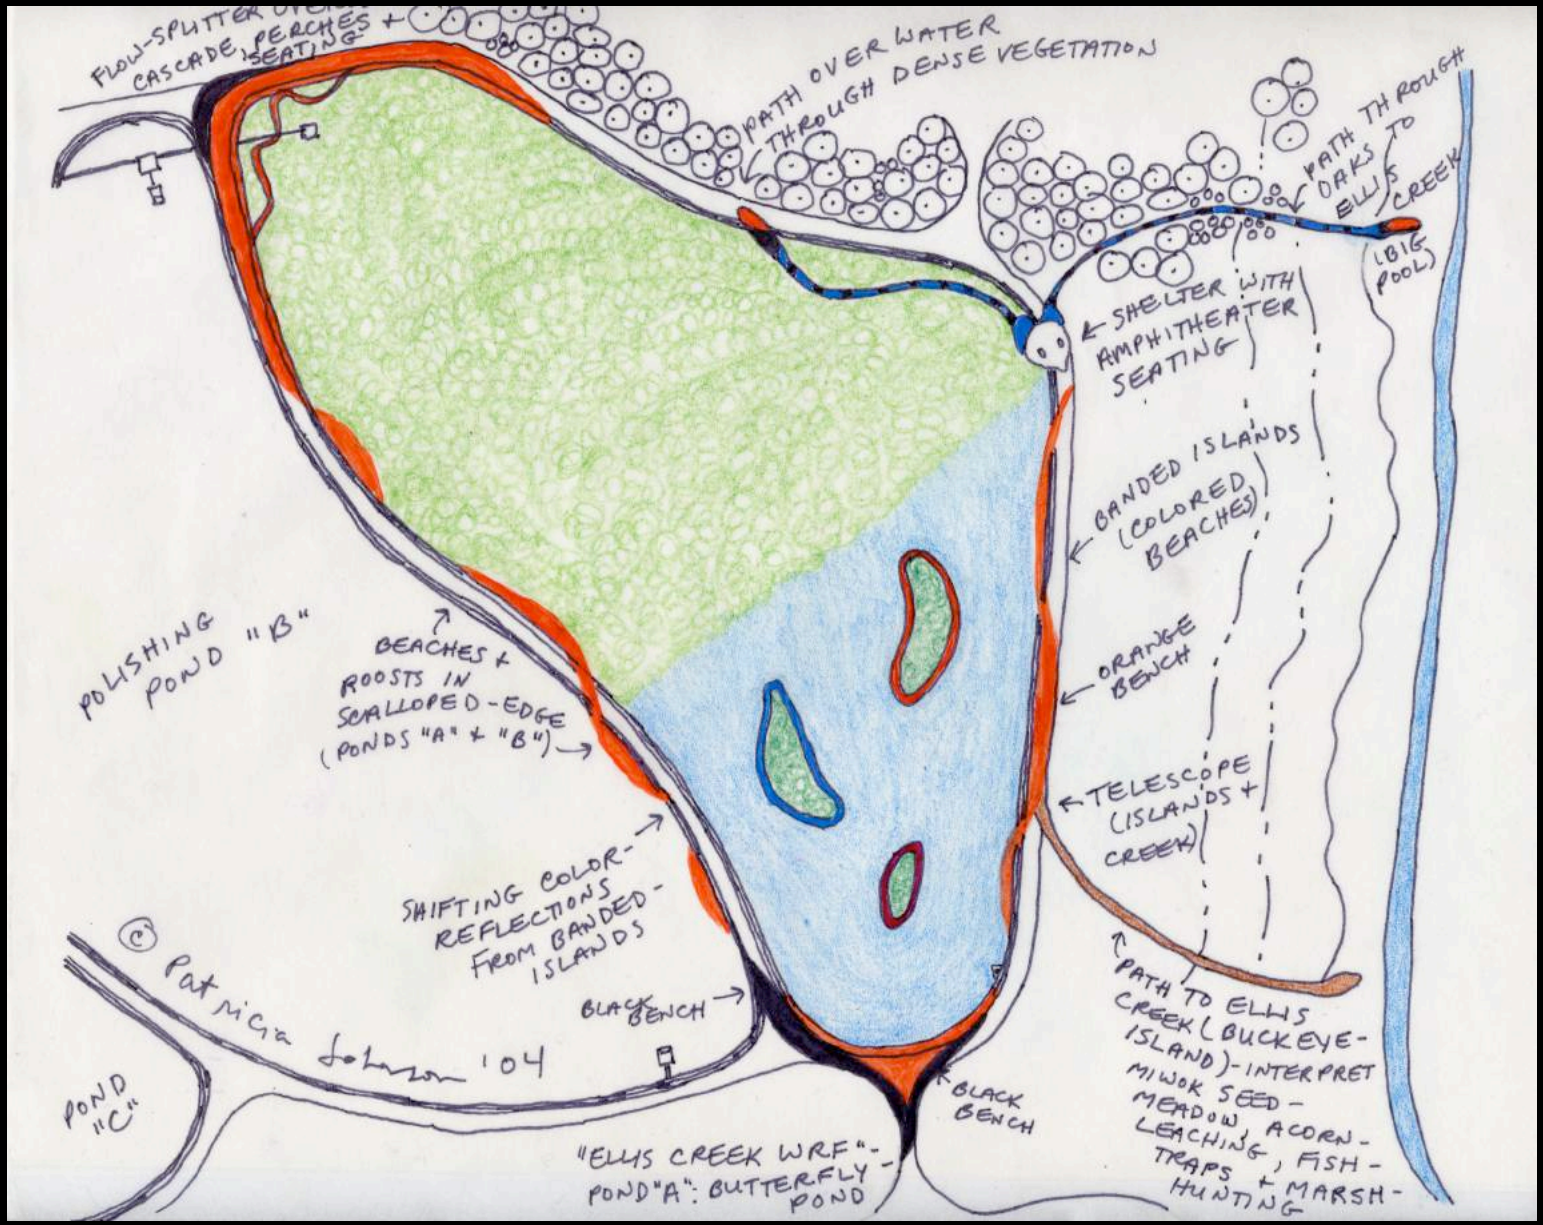 FLOW-SPLITTER
CASCADE, PERCHES +
SEATING
PATH OVER WATER
THROUGH DENSE VEGETATION
PATH THROUGH
OAKS TO
ELLIS CREEK
(BIG
POOL)
SHELTER WITH
AMPHITHEATER
SEATING
BANDED ISLANDS
(COLORED
BEACHES)
ORANGE
BENCH
TELESCOPE
(ISLANDS +
CREEK)
POLISHING
POND "B"
BEACHES +
ROOSTS IN
SCALLOPED-EDGE
(PONDS "A" + "B")
SHIFTING COLOR-
REFLECTIONS
FROM BANDED-
ISLANDS
BLACK
BENCH
© Patricia Johanson '04
POND
"C"
BLACK
BENCH
PATH TO ELLIS
CREEK (BUCKEYE-
ISLAND)-INTERPRET
MIWOK SEED-
MEADOW, ACORN-
LEACHING, FISH-
TRAPS + MARSH-
HUNTING
"ELLIS CREEK WRF"-
POND "A": BUTTERFLY-
POND